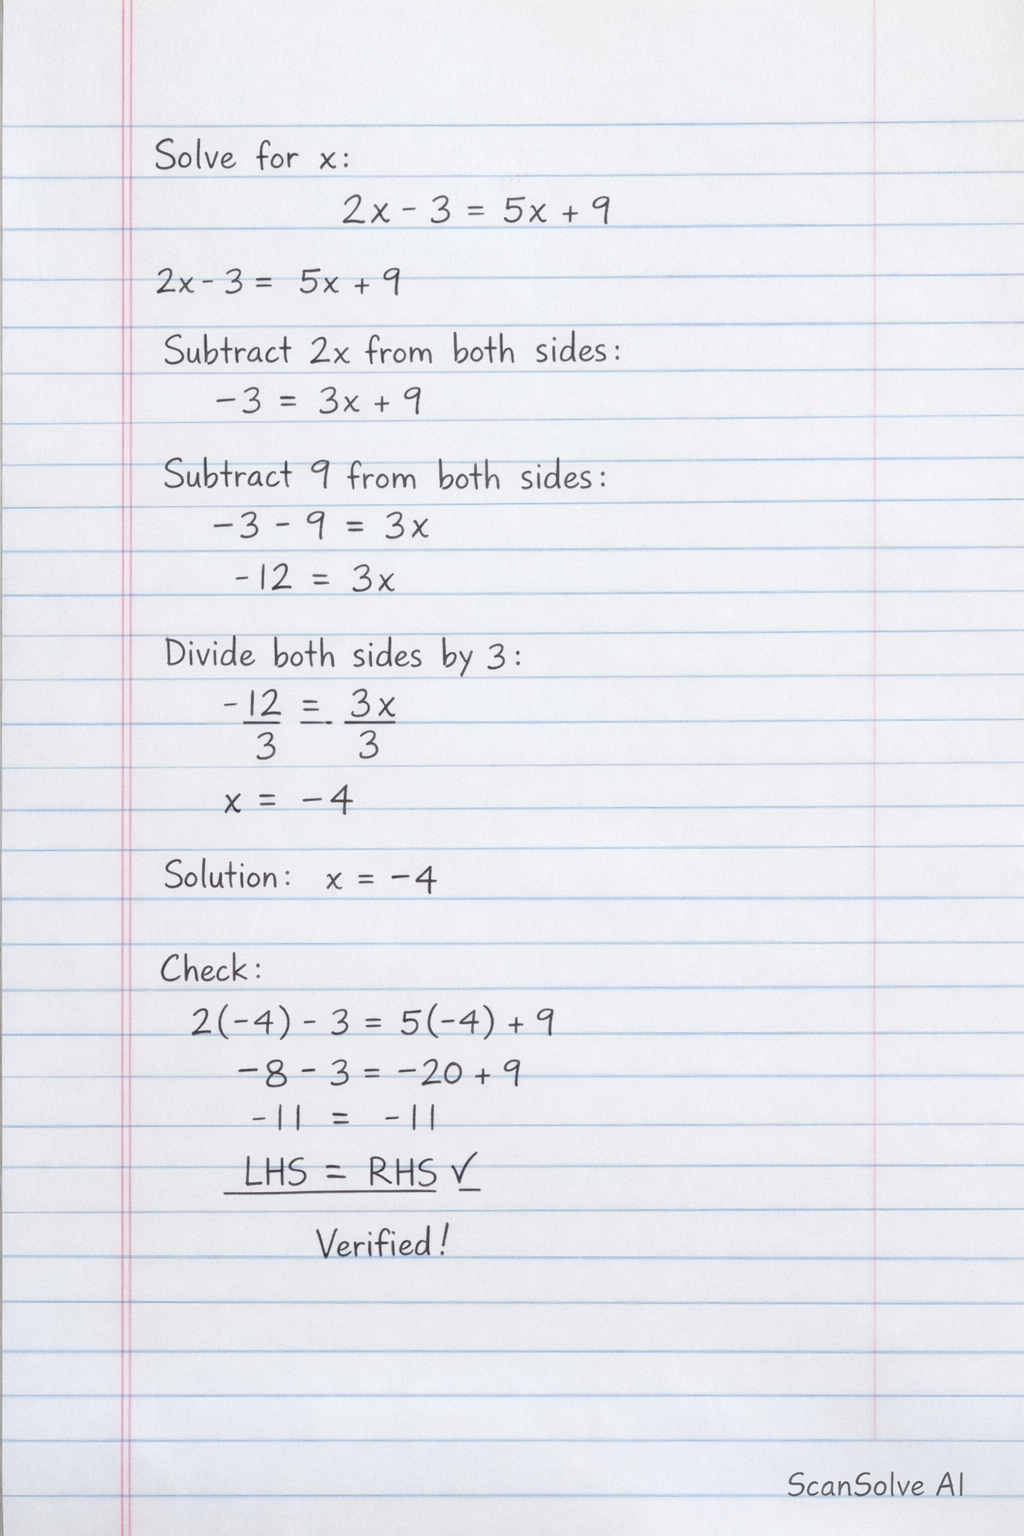 Solve for x:
2x - 3 = 5x + 9
2x - 3 = 5x + 9
Subtract 2x from both sides:
-3 = 3x + 9
Subtract 9 from both sides:
-3 - 9 = 3x
-12 = 3x
Divide both sides by 3:
-12/3 = 3x/3
x = -4
Solution: x = -4
Check:
2(-4) - 3 = 5(-4) + 9
-8 - 3 = -20 + 9
-11 = -11
LHS = RHS ✓
Verified!
ScanSolve AI